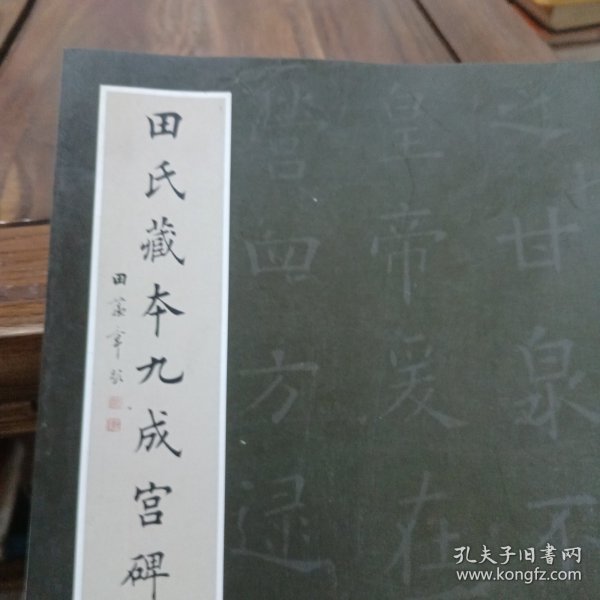 田氏藏本九成宫碑
田蕴章题
迩甘泉不
皇帝爰在
旧四方逮
孔夫子旧书网
www.kongfz.com